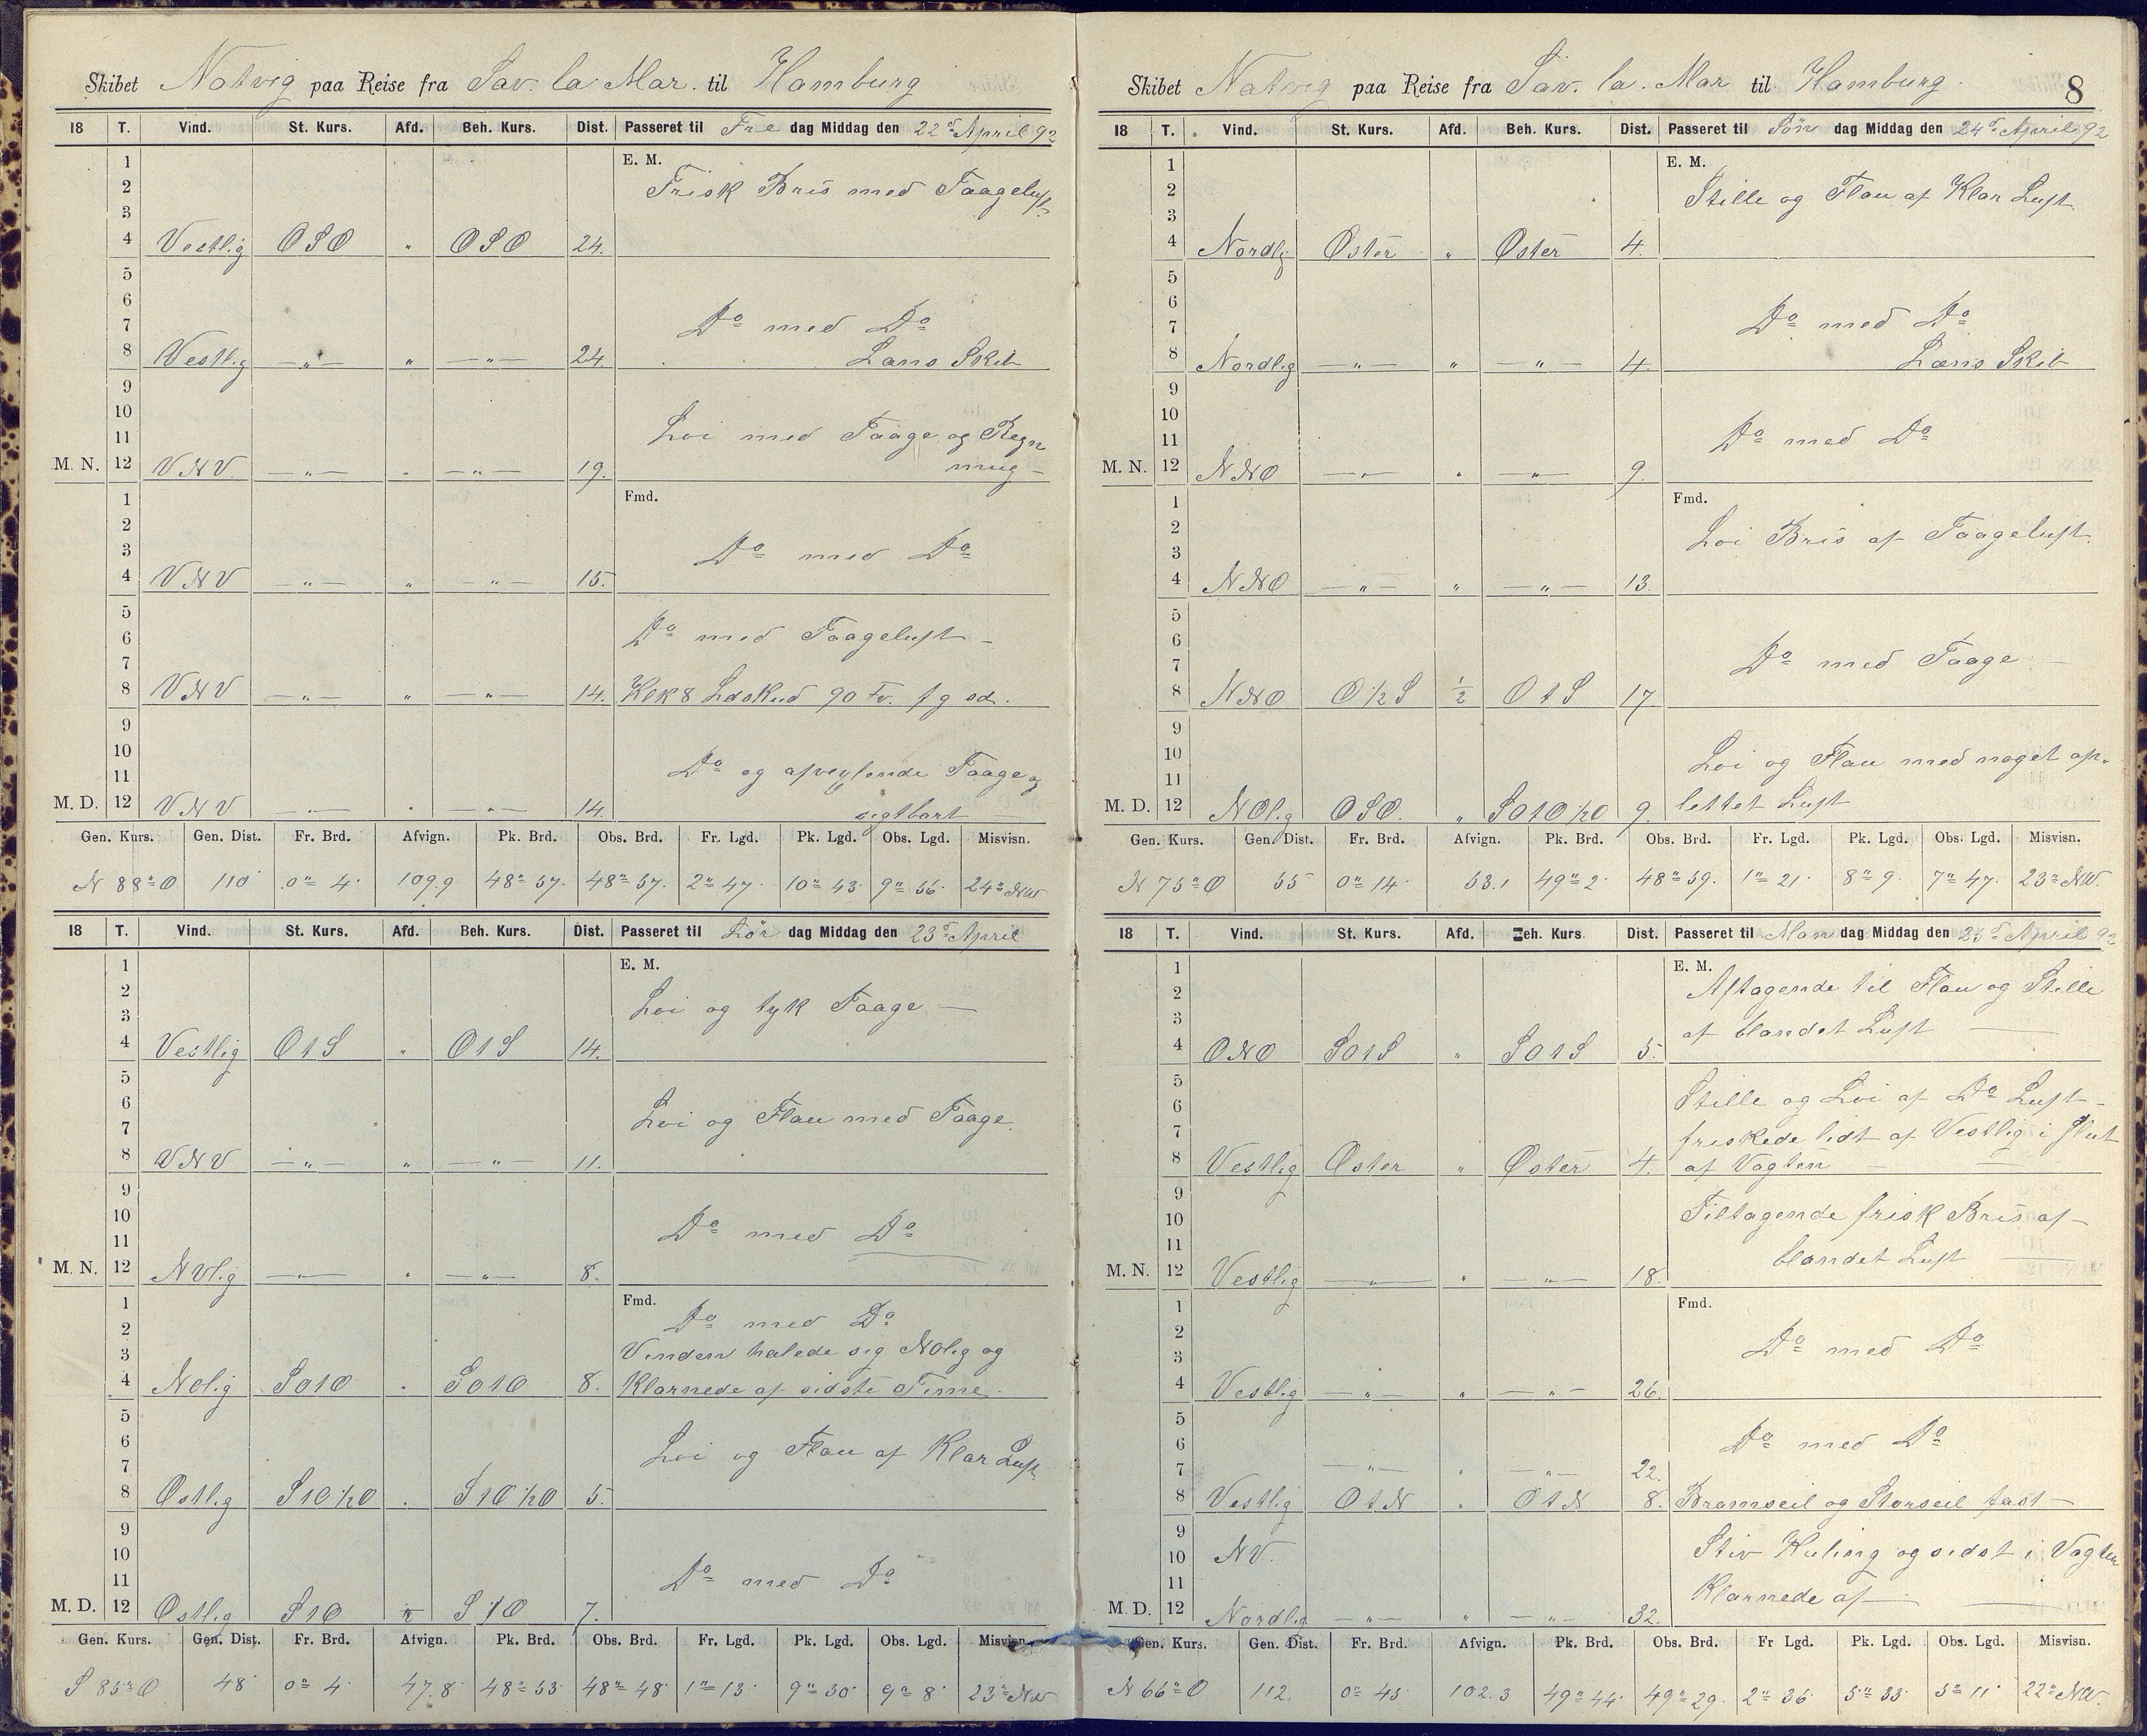 Skibet Natvig paa Reise fra Sav. la. Mar. til Hamburg
18 T. Vind. St. Kurs. Afd. Beh. Kurs. Dist. Passeret til Fre dag Middag den 22d April 92
1 E. M.
2 Frisk Bris med Taageluft
3
4 Vestlig OSO " OSO 24.
5
6
7 Do med Do
8 Vestlig —"— " —"— 24. Læns Skib
9
10
11 Loi med Taage og Regn
M. N. 12 VNV —"— " —"— 19.
1 Fmd.
2
3 Do med Do
4 VNV —"— " —"— 15.
5
6 Do med Taageluft —
7
8 VNV —"— " —"— 14. Klk 8 Lodskud 90 Fv.
9
10
11 Do og afvexlende Taage og
M. D. 12 VNV —"— " —"— 14. sigtbart
Gen. Kurs. Gen. Dist. Fr. Brd. Afvign. Pk. Brd. Obs. Brd. Fr. Lgd. Pk. Lgd. Obs. Lgd. Misvisn.
N 88° O 110' 0° 4' 109.9 48° 57' 48° 57' 2° 47' 10° 43' 9° 56' 24° NW
18 T. Vind. St. Kurs. Afd. Beh. Kurs. Dist. Passeret til Lör dag Middag den 23d April
1 E. M.
2 Loi og tyk Taage —
3
4 Vestlig OtS " OtS 14.
5
6
7 Loi og Flau med Taage.
8 VNV —"— " —"— 11.
9
10
11 Do med Do
M. N. 12 NVlig —"— " —"— 8.
1 Fmd. Do med Do
2
3 Vinden halede sig NOlig og
4 NOlig SOtO " SOtO 8. Klarnede af sidste Time.
5
6
7 Loi og Flau af Klar Luft
8 Ostlig StO½O " StO½O 5.
9
10
11 Do med Do
M. D. 12 Ostlig StO StO 7.
Gen. Kurs. Gen. Dist. Fr. Brd. Afvign. Pk. Brd. Obs. Brd. Fr. Lgd. Pk. Lgd. Obs. Lgd. Misvisn.
S 85° O 48' 0° 4' 47.8 48° 53' 48° 48' 1° 13' 9° 30' 9° 8' 23° NW
Skibet Natvig paa Reise fra Sav. la. Mar til Hamburg. 8
18 T. Vind. St. Kurs. Afd. Beh. Kurs. Dist. Passeret til Sön dag Middag den 24d April 92
1 E. M.
2 Stille og Flau af Klar Luft
3
4 Nordlig Öster " Öster 4.
5
6
7 Do med Do
8 Nordlig —"— " —"— 4. Læns Skib
9
10
11 Do med Do
M. N. 12 NNO —"— " —"— 9.
1 Fmd.
2 Loi Bris af Taageluft.
3
4 NNO —"— " —"— 13.
5
6
7 Do med Taage —
8 NNO O½S ½ OtS 17.
9
10 Loi og Flau med noget op-
11
M. D. 12 NOlig OSO. " SOtO½O 9. lettet Luft
Gen. Kurs. Gen. Dist. Fr. Brd. Afvign. Pk. Brd. Obs. Brd. Fr. Lgd. Pk. Lgd. Obs. Lgd. Misvisn.
N 75° O 55 0° 14' 53.1 49° 2' 48° 59' 1° 21' 8° 9' 7° 47' 23° NW.
18 T. Vind. St. Kurs. Afd. Beh. Kurs Dist. Passeret til Man dag Middag den 25d April 92
1 E. M.
2 Aftagende til Flau og Stille
3 af blandet Luft —
4 ONO SOtS " SOtS 5.
5
6 Stille og Loi af Do Luft —
7 friskede lidt af Vestlig i Slut
8 Vestlig Öster " Öster 4. af Vagten —
9
10 Tiltagende frisk Bris af —
11
M. N. 12 Vestlig —"— " —"— 18. blandet Luft —
1 Fmd.
2
3 Do med Do
4 Vestlig —"— " —"— 26.
5
6 Do med Do
7 —"— " —"— 22.
8 Vestlig OtN " OtN 8. Bramseil og Storseil fast —
9
10 NV. Stiv Kuling og sidst i Vagten
11 Klarnede af —
M. D. 12 Nordlig —"— " —"— 32.
Gen. Kurs. Gen. Dist. Fr. Brd. Afvign. Pk. Brd. Obs. Brd. Fr Lgd. Pk. Lgd. Obs. Lgd. Misvisn.
N 66° O 112. 0° 45' 102.3 49° 44' 49° 29' 2° 36' 5° 33' 5° 11' 22° NW.